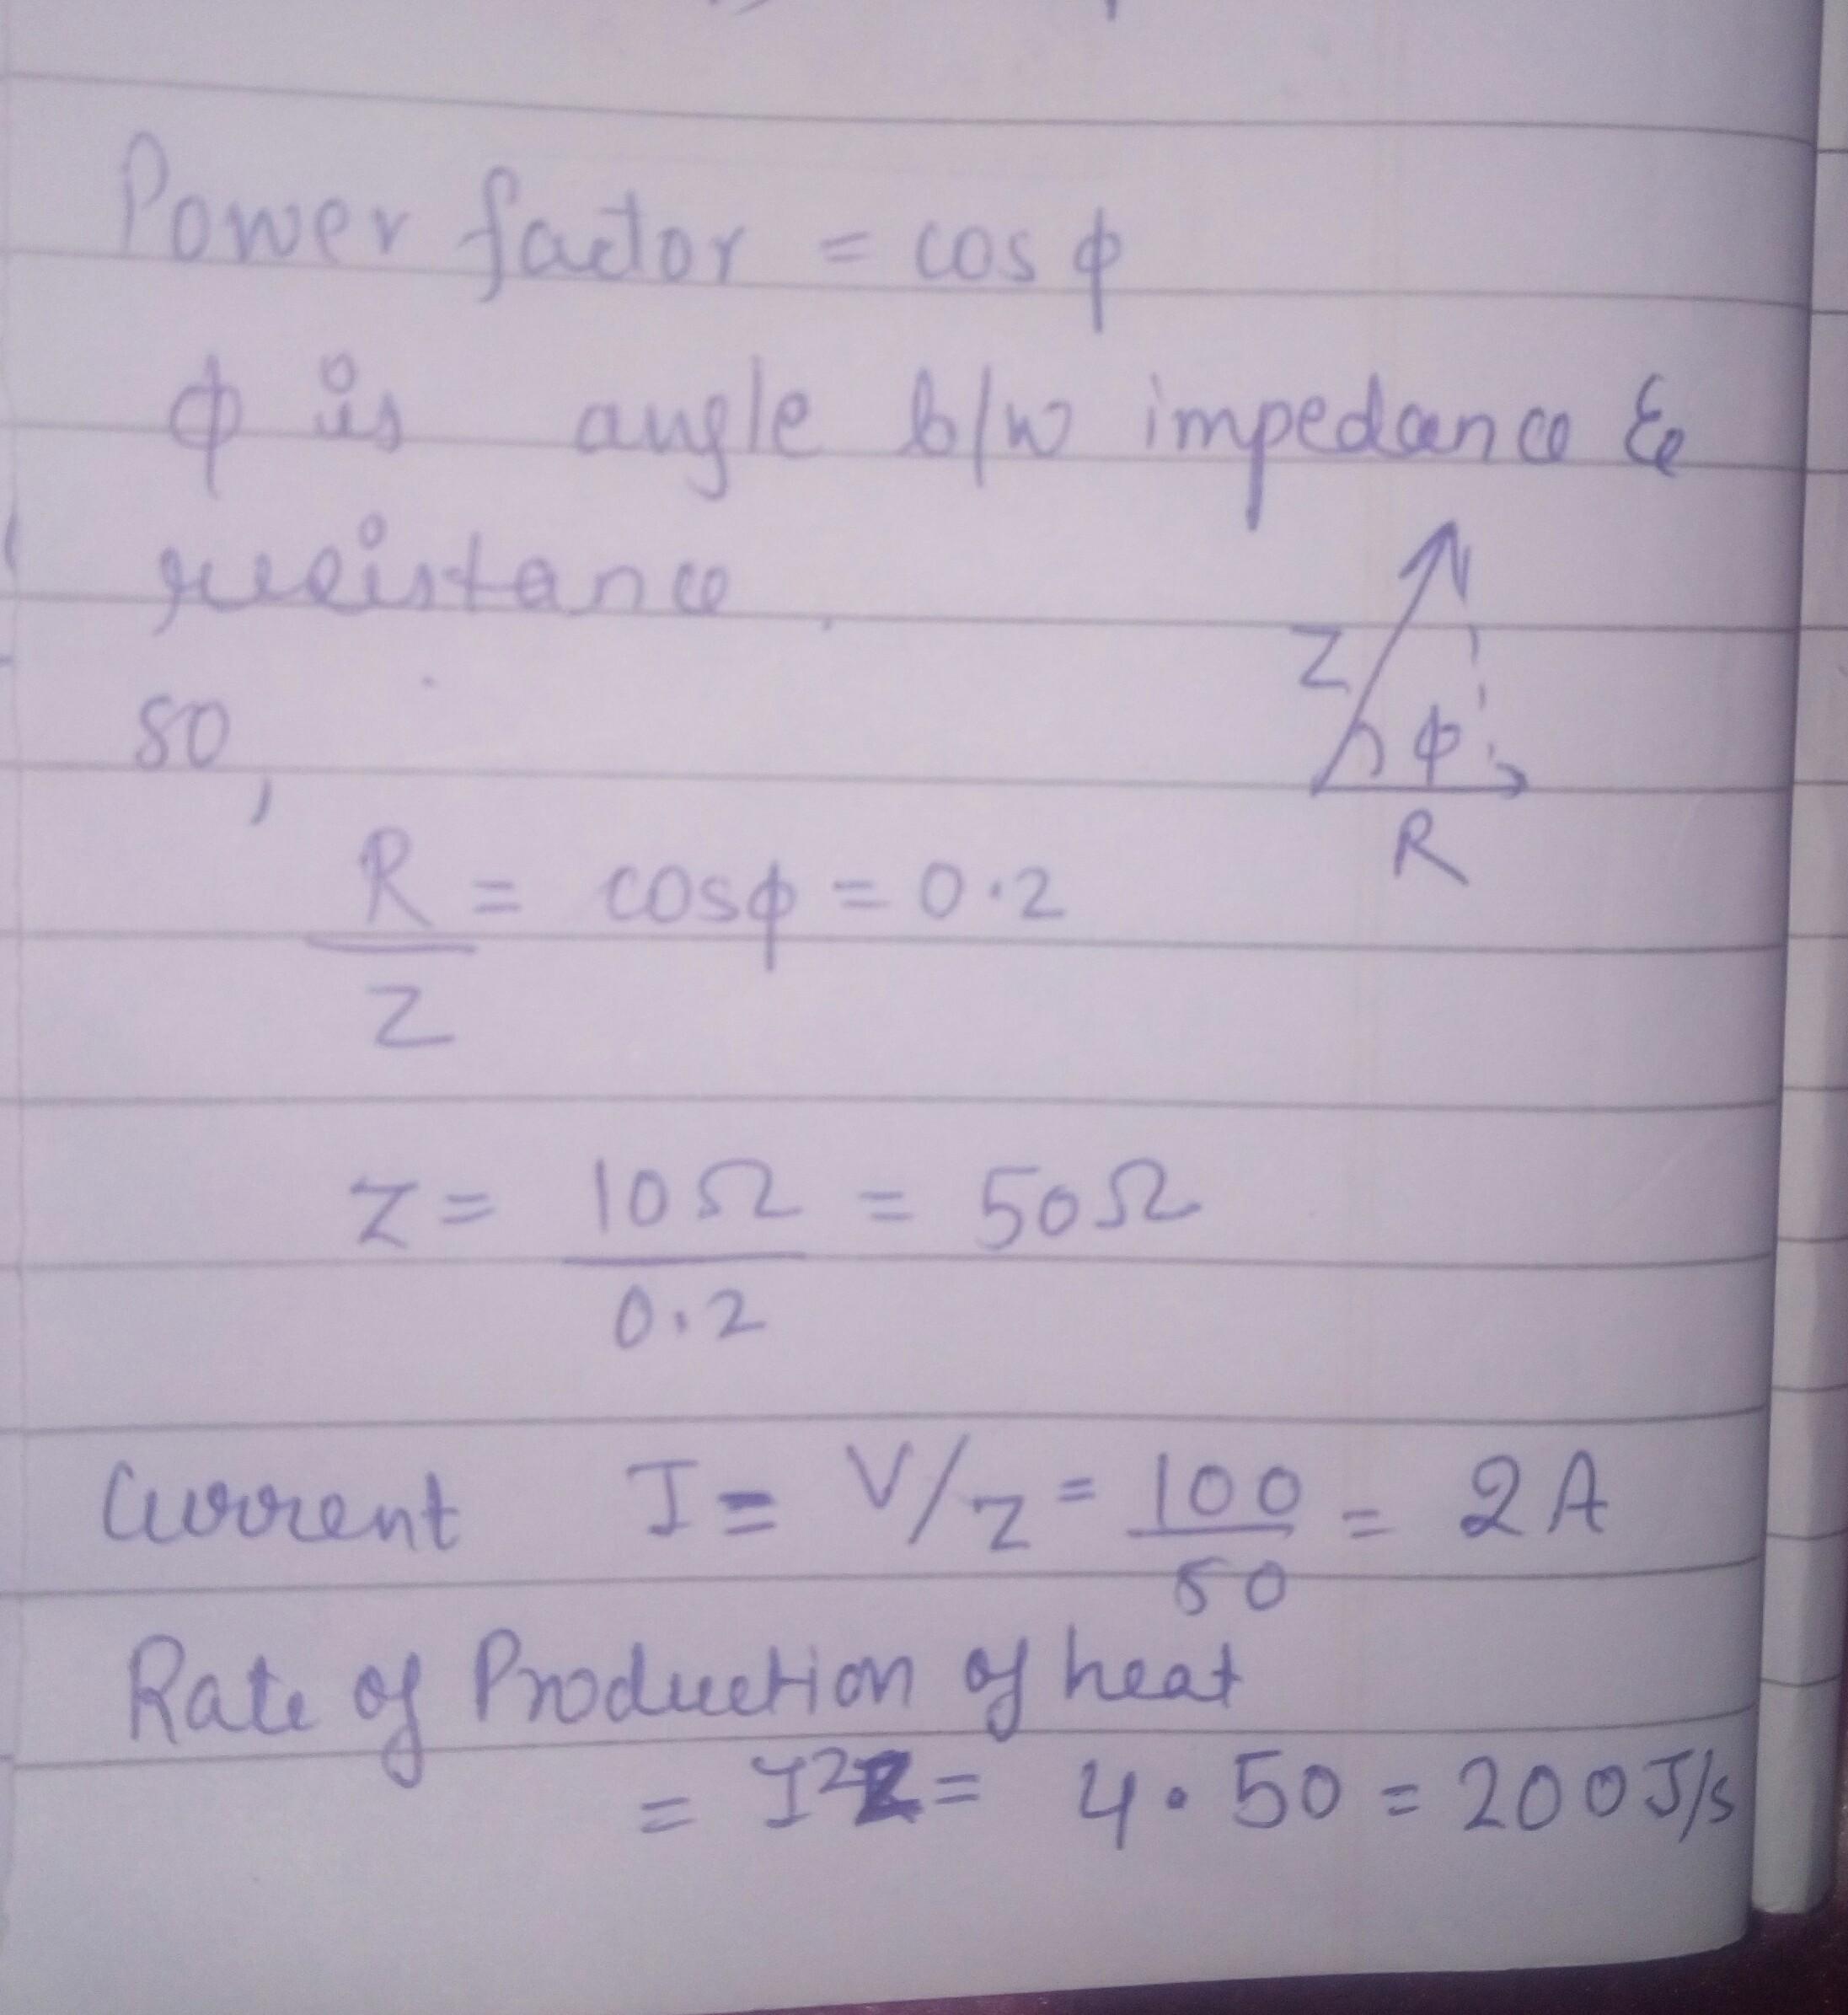 Power factor = cos ϕ
ϕ is angle b/w impedance &
resistance
so,
Z
ϕ
R
R/Z = cosϕ = 0.2
Z = 10Ω/0.2 = 50Ω
Current I = V/Z = 100/50 = 2A
Rate of Production of heat
= I²Z = 4 · 50 = 200 J/s